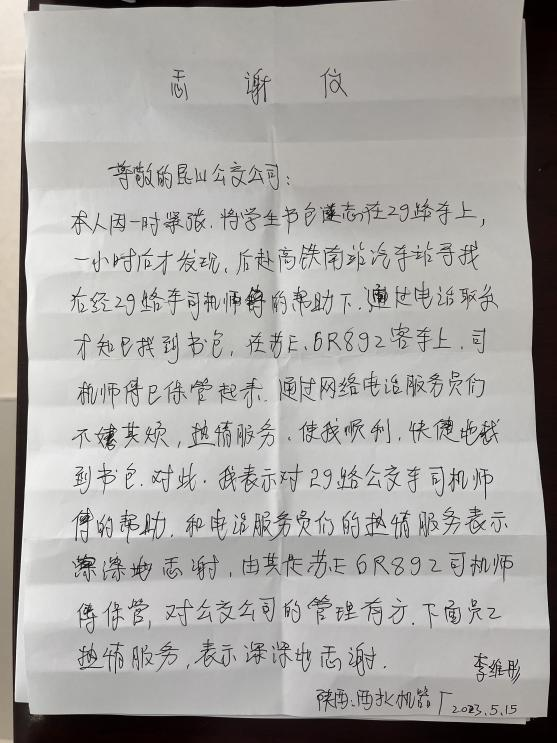 志谢仪
尊敬的昆山公交公司：
本人因一时紧张．将学生书包遗忘在29路车上，
一小时后才发现，后赴高铁南站汽车站寻找
在经29路车司机师傅的帮助下．通过电话联系
才知已找到书包，在苏E．6R892客车上，司
机师傅已保管起来．通过网络电话服务员们
不嫌其烦，热情服务．使我顺利，快捷地找
到书包．对此．我表示对29路公交车司机师
傅的帮助．和电话服务员们的热情服务表示
深深地志谢，由其在苏E6R892司机师
傅保管，对公交公司的管理有方．下面员工
热情服务，表示深深地志谢．
李维彤
陕西：西北机器厂2023.5.15